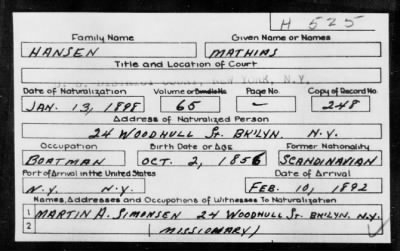 H 525
Family Name Given Name or Names
HANSEN MATHIAS
Title and Location of Court
U.S. DISTRICT COURT, NEW YORK, N.Y.
Date of Naturalization Volume or Bundle No Page No. Copy of Record No.
JAN. 13, 1898 65 — 248
Address of Naturalized Person
24 WOODHULL ST. BK'LYN. N.Y.
Occupation Birth Date or Age Former Nationality
BOATMAN OCT. 2, 1856 SCANDINAVIAN
Port of Arrival in the United States Date of Arrival
N.Y. N.Y. FEB. 10, 1892
Names, Addresses and Occupations of Witnesses To Naturalization
1 MARTIN A. SIMONSEN 24 WOODHULL ST. BK'LYN. N.Y.
2 (MISSIONARY)